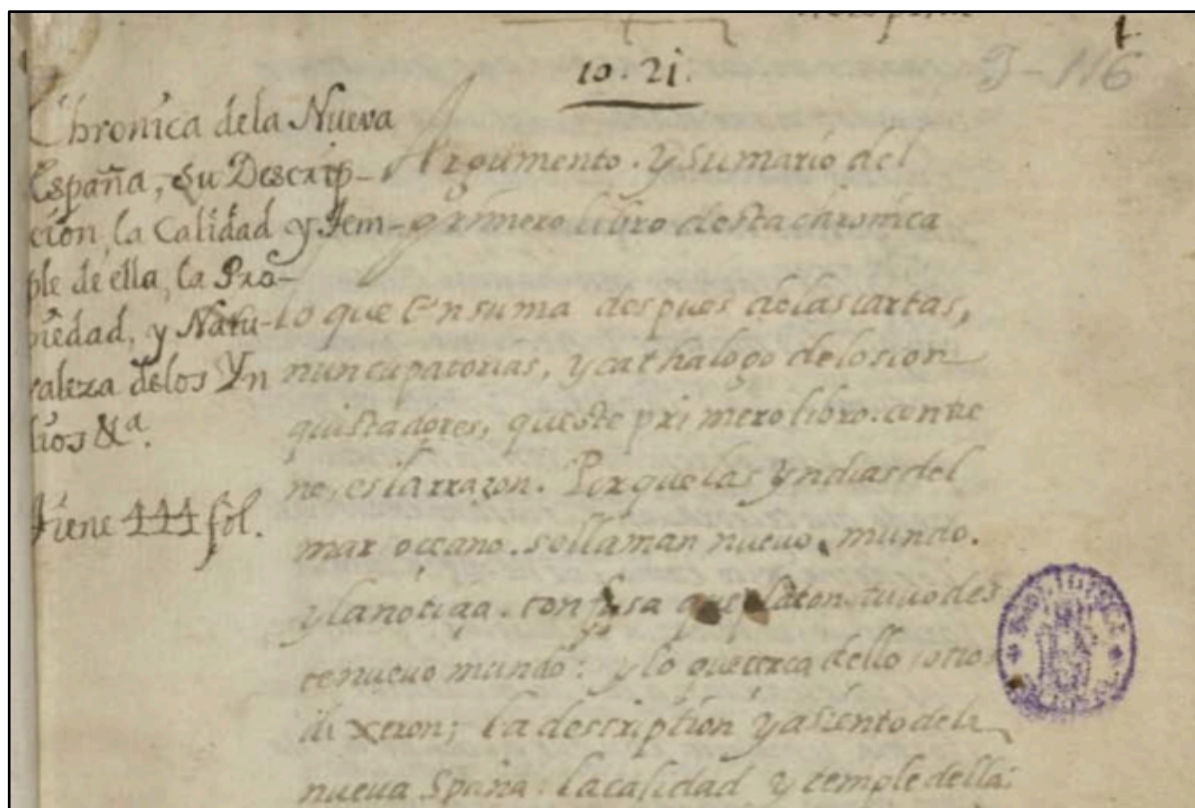 10. 21.
1
J-116
Chronica dela Nueva
España, Su Descrip-
cion, la Calidad y Tem-
ple de ella, la Pro-
piedad, y Natu-
raleza delos Yn
dios &a.
Tiene 444 fol.
Argumento. y sumario del
primero libro desta chronica
lo que En suma despues delas cartas,
nuncupatorias, y cathalogo delos con
quistadores, queste primero libro. contie
ne, es la rrazon. Porque las yndias del
mar occeano. se llaman nuevo. mundo.
y la notiçia. confusa que platon. tuuo des
te nueuo mundo: y lo que cerca dello otros
dixeron; la description y asiento dela
nueua Spaña. la calidad y temple della: